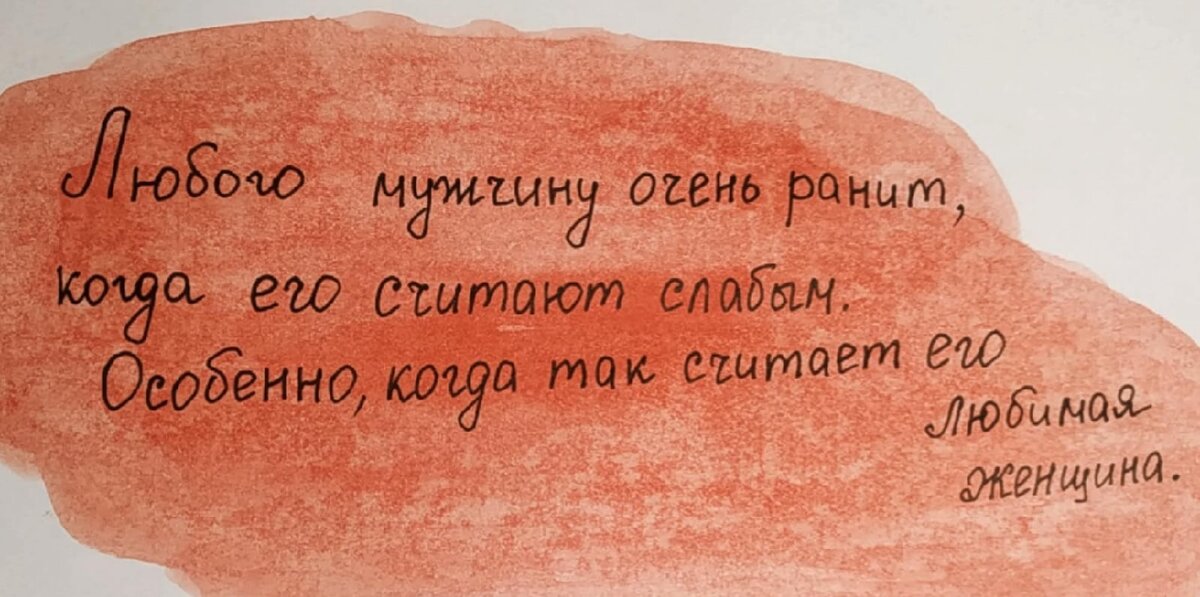 Любого мужчину очень ранит,
когда его считают слабым.
Особенно, когда так считает его
любимая
женщина.